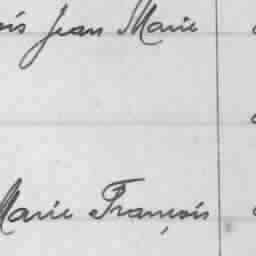 Jean Marie
Marie François